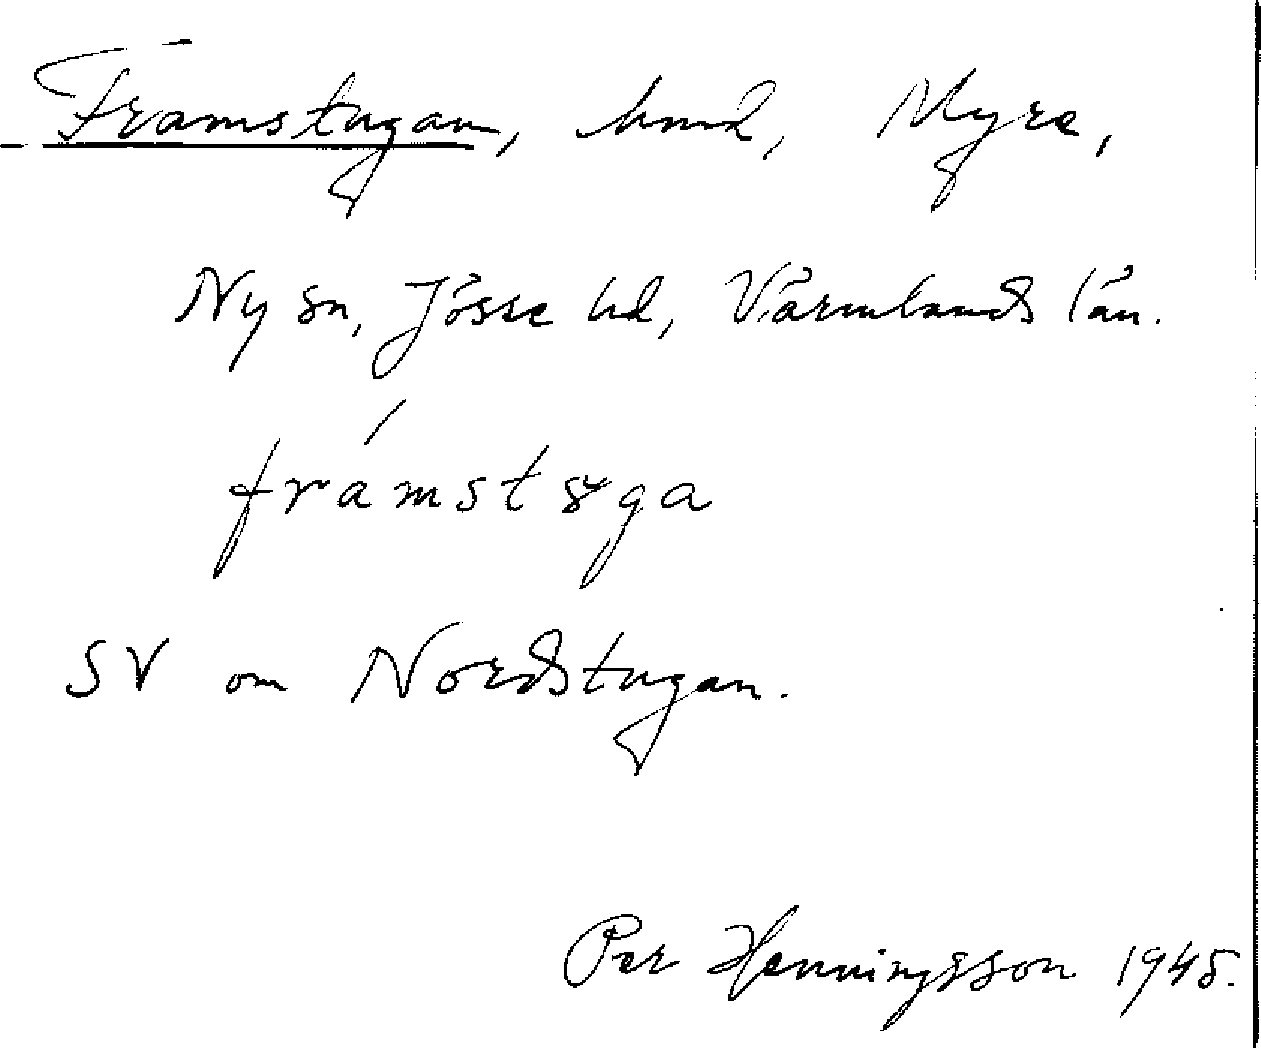 Framstugan, hmd, Myre,
Ny sn, Jösse hd, Värmlands län.
SV om Nordstugan.
Per Henningsson 1945.